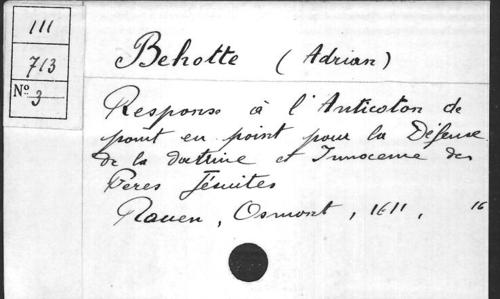 111
713
Nº 3
Behotte (Adrian)
Response à l'Anticoton de
point en point pour la Défense
de la doctrine et Innocence des
Peres Jésuites
Rouen, Osmont, 1611, 16